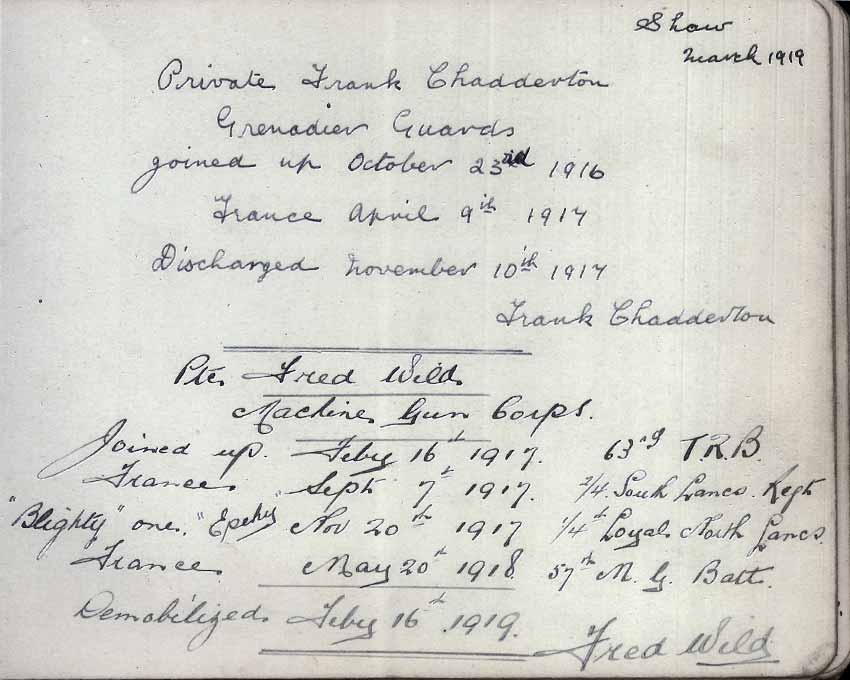 Shaw
March 1919
Private Frank Chadderton
Grenadier Guards
joined up October 23rd 1916
France April 9th 1917
Discharged November 10th 1917
Frank Chadderton
Pte. Fred Wild.
Machine Gun Corps.
Joined up. Feby 16th 1917. 63rd T.R.B.
France. Sept 7th 1917. 2/4. South Lancs. Regt
"Blighty" one. "Epehy" Nov 20th 1917 1/4th Loyal North Lancs.
France. May 20th 1918. 57th M. G. Batt.
Demobilized. Feby 16th 1919.
Fred Wild